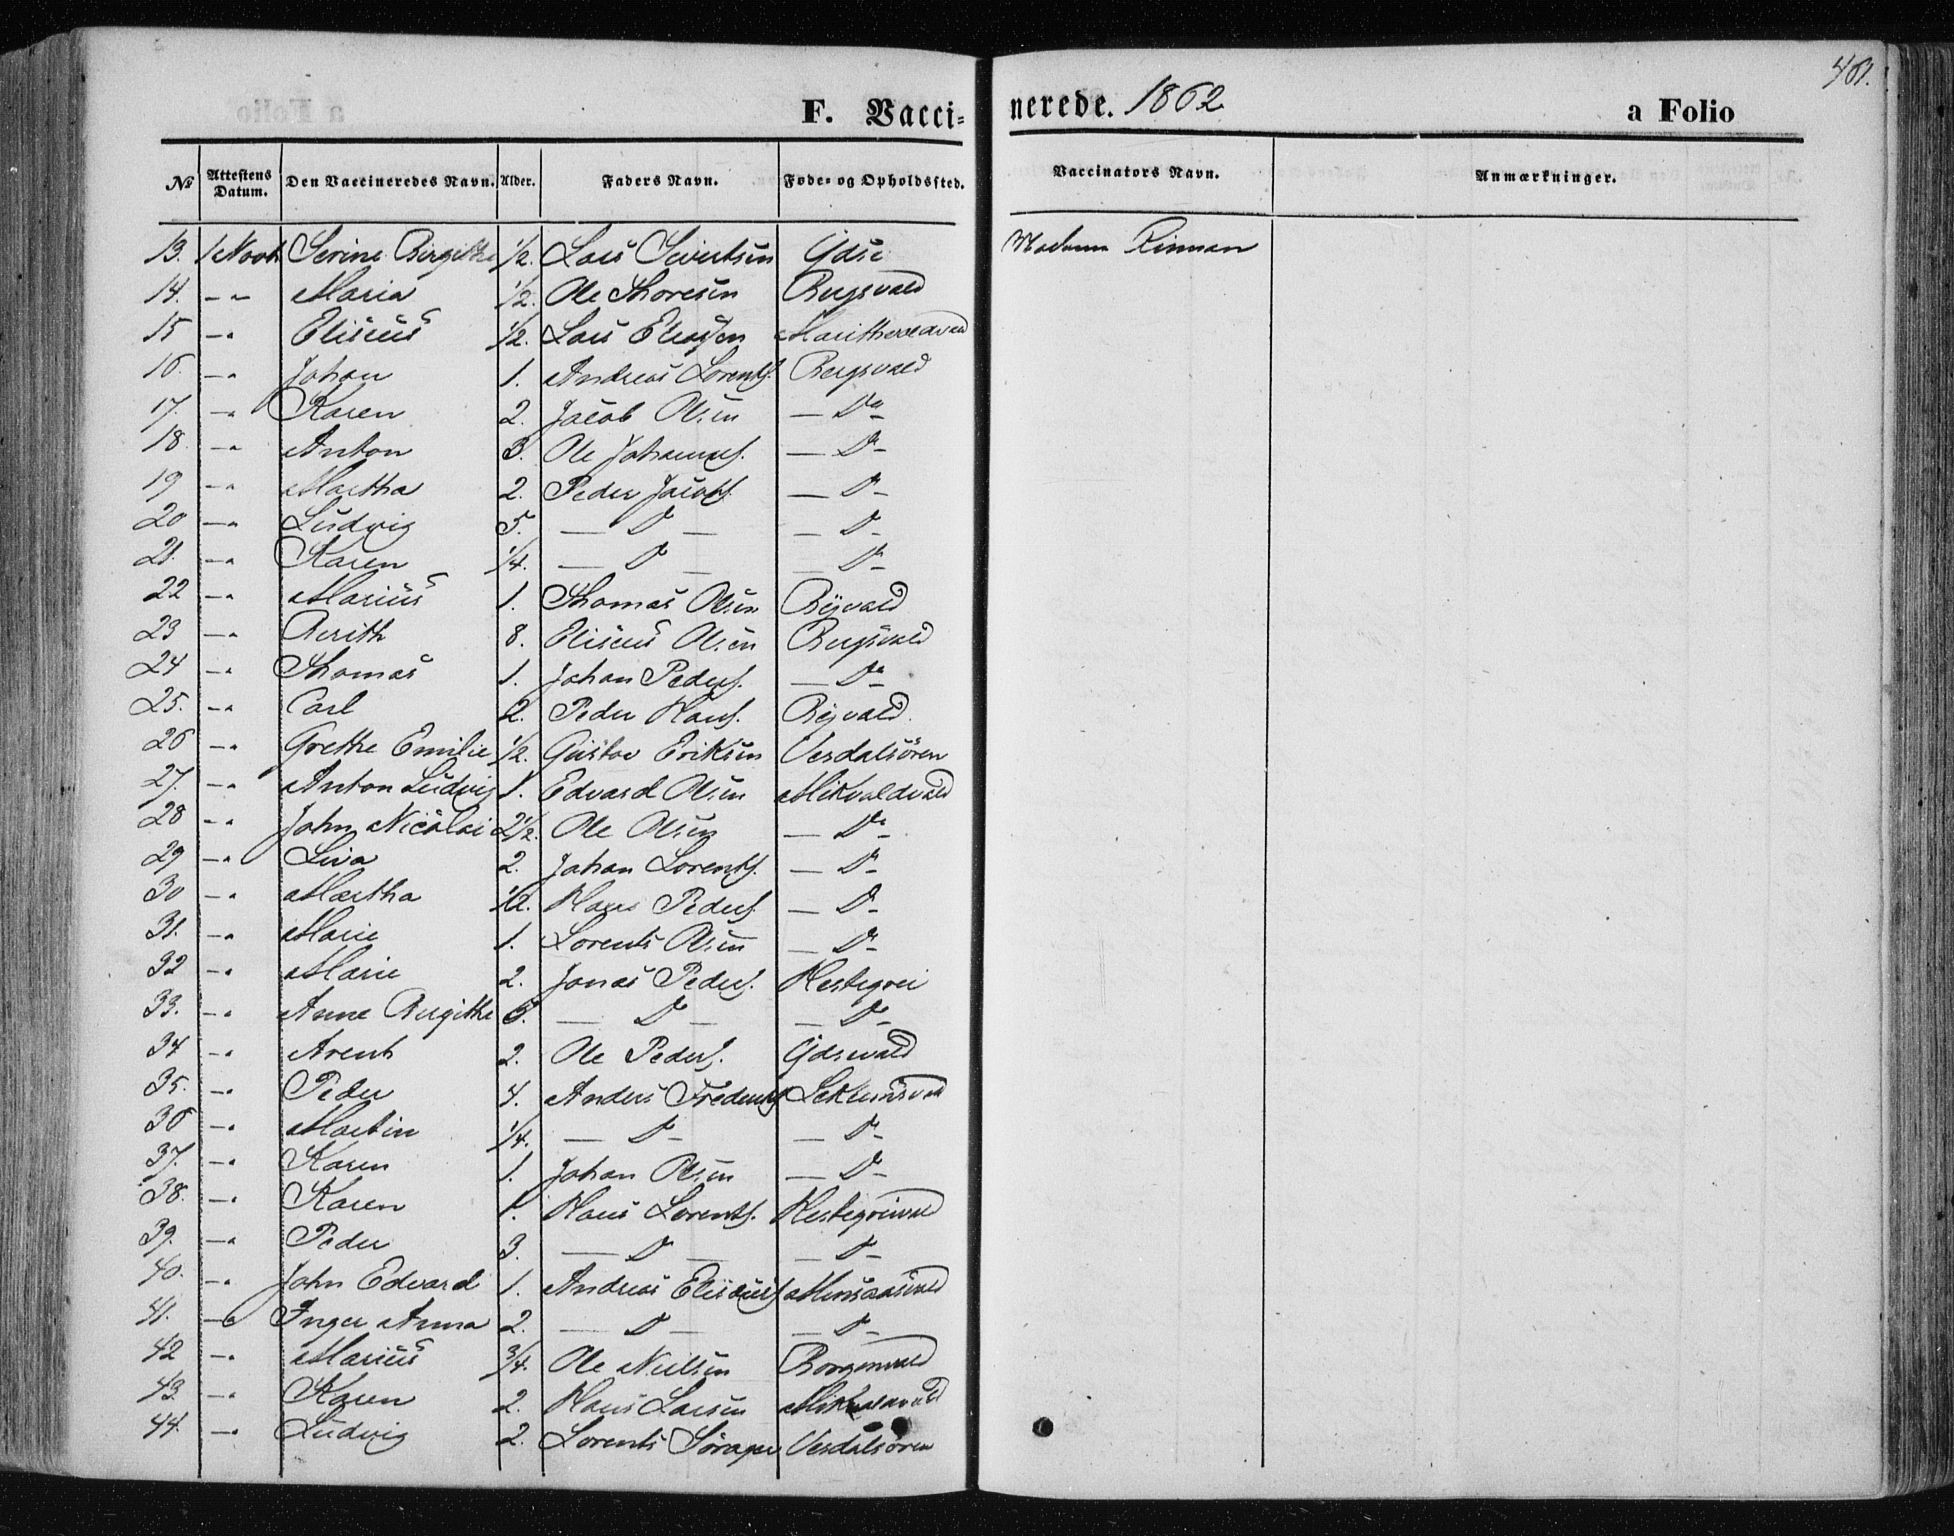 461.
F. Vaccinerede. 1862 a Folio
№ Attestens Datum. Den Vaccineredes Navn. Alder. Faders Navn. Føde- og Opholdssted. Vaccinators Navn. Anmærkninger.
13. 1 Novb Serine Birgithe 1/2. Lars Sivertsen Ydse Madame Rinnan
14. -"- Maria 1/2. Ole Thoresen Bergsvald
15 -"- Eliseus 1/2. Lars
16. -"- Johan 1. Andreas Lorents. Bergsvald
17. -"- Karen 2. Jacob Olsen — Do -
18. -"- Anton 3. Ole Johannes. — D -
19 -"- Martha 2. Peder Jacobs. — D -
20 -"- Ludvig 5. — D — — D -
21. -"- Karen 1/4. — D — — D -
22 -"- Marius 1. Thomas Olsen
23 -"- Berith 8. Eliseus Olsen Bergsvald
24 -"- Thomas 1. Johan Peders. — Do -
25. -"- Carl 2. Peder Hans.
26 -"- Grethe Emilie 1/2. Gustav Eriksen Verdalsøren
27. -"- Anton Ludvig 1. Edvard Olsen Mikvoldvald
28 -"- John Nicolai 2 1/2. Ole Olsen — Do -
29 -"- Lina 2. Johan Lorents. — D -
30 -"- Martha 1/2. Hans Peders. — D -
31. -"- Marie 1. Lorents Olsen — D -
32 -"- Marie 2. Jonas Peders. Hestegrei
33. -"- Anne Birgithe 6. — D — — D -
34 -"- Arent 2. Ole Peders. Ydsevald
35. -"- Peder 4. Anders Frederiks. Leklemsvald
36 -"- Martin 1/4. — D - — D -
37. -"- Karen 1. Johan Olsen — D -
38. -"- Karen 1. Hans Lorents. Hestegreivald
39. -"- Peder 3. — D — — D -
40. -"- John Edvard 1. Andreas Eliseus. Minsaasvald
41. -"- Inger Anna 2. — D — — D -
42 -"- Marius 3/4. Ole Nielsen Borgenvald
43. -"- Karen 2. Hans Larsen
44. -"- Ludvig 2. Lorents Verdalsøren